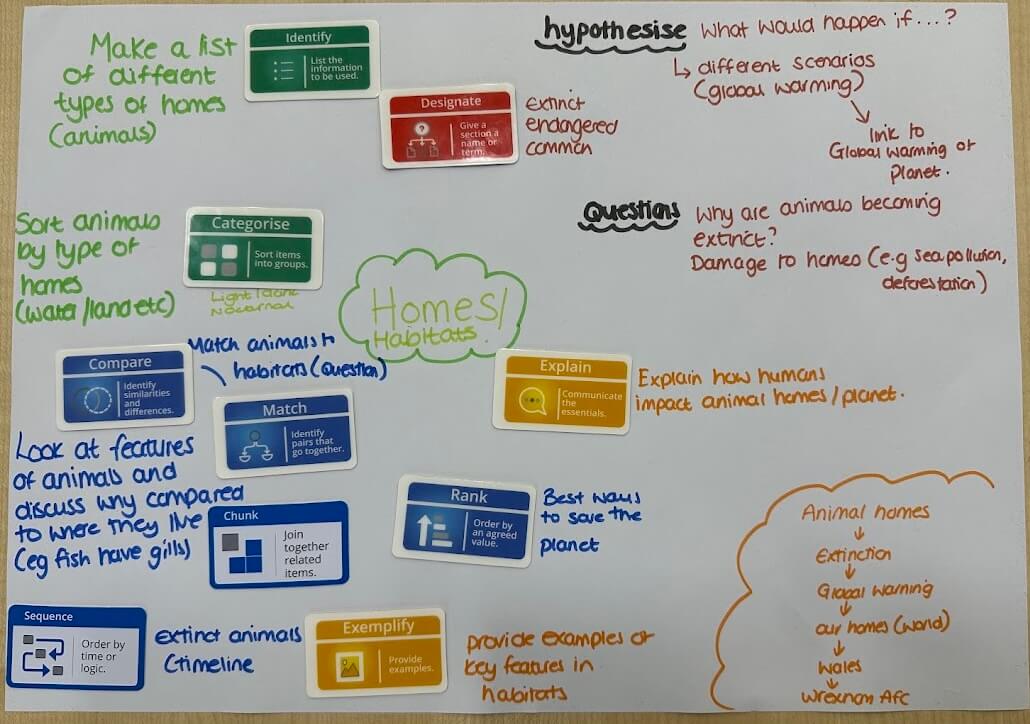 Make a list
of different
types of homes
(animals)
Identify
List the
information
to be used.
Designate
Give a
section a
name or
term.
extinct
endangered
common
hypothesise
What would happen if...?
↳ different scenarios
(global warming)
link to
Global warming of
planet.
Sort animals
by type of
homes
(water/land etc)
Categorise
Sort items
into groups.
Light/dark
Nocturnal
Homes/
Habitats
Questions
Why are animals becoming
extinct?
Damage to homes (e.g sea pollution,
deforestation)
Compare
Identify
similarities
and
differences.
Match animals to
habitats (Question)
Match
Identify
pairs that
go together.
Explain
Communicate
the
essentials.
Explain how humans
impact animal homes/planet.
Look at features
of animals and
discuss why compared
to where they live
(eg fish have gills)
Chunk
Join
together
related
items.
Rank
Order by
an agreed
value.
Best ways
to save the
planet
Sequence
Order by
time or
logic.
extinct animals
(timeline
Exemplify
Provide
examples.
provide examples of
key features in
habitats
Animal homes
↓
Extinction
↓
Global warning
↓
our homes (world)
↓
Wales
↓
Wrexham AFC